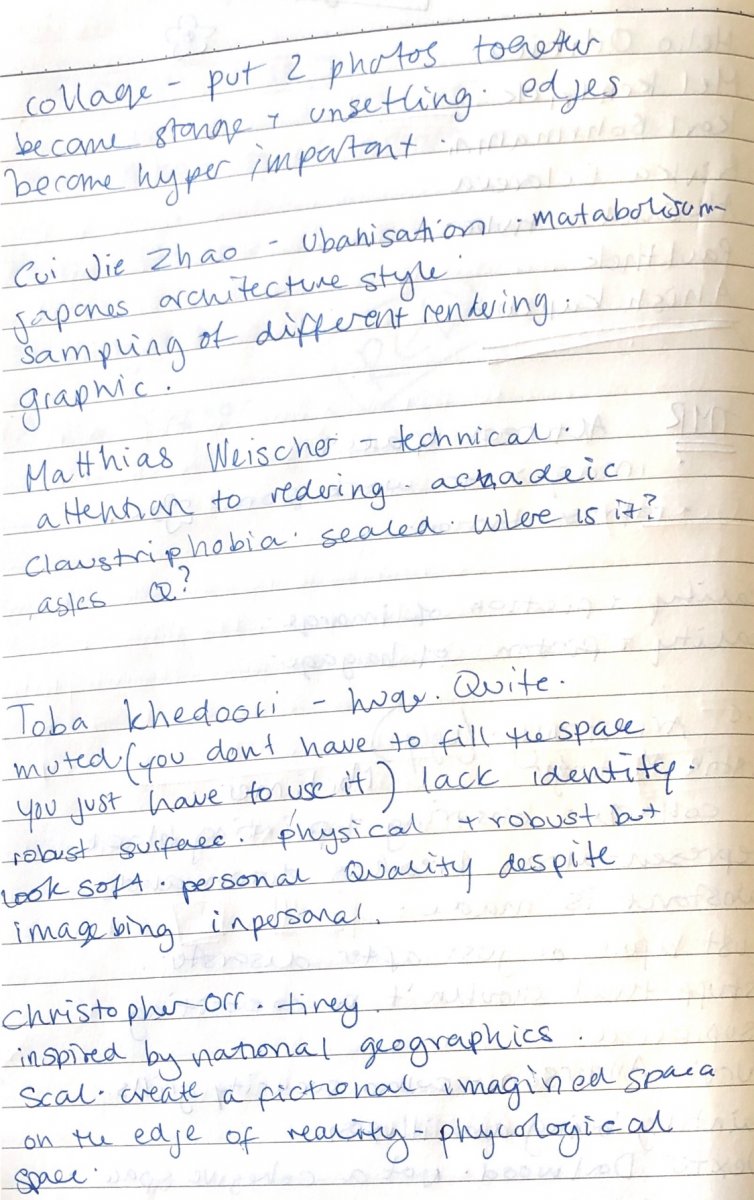 collage - put 2 photos together
became stange + unsettling. edges
become hyper important.
Cui Jie Zhao - Ubanisation. matabolisum
Japanes architecture style.
sampling of different rendering.
graphic.
Matthias Weischer - technical.
attention to redering. acnadeic
Clawstriphobia. sealed. where is it?
asks Q?
Toba Khedoori - huge. Quite.
muted (you dont have to fill the space
you just have to use it) lack identity.
robust surface. physical + robust but
look soft. personal Quality despite
image bing inpersonal.
Christopher Orr. tiney.
inspired by national geographics.
Scal. create a fictional imagined space
on the edge of reality - phycological
space.